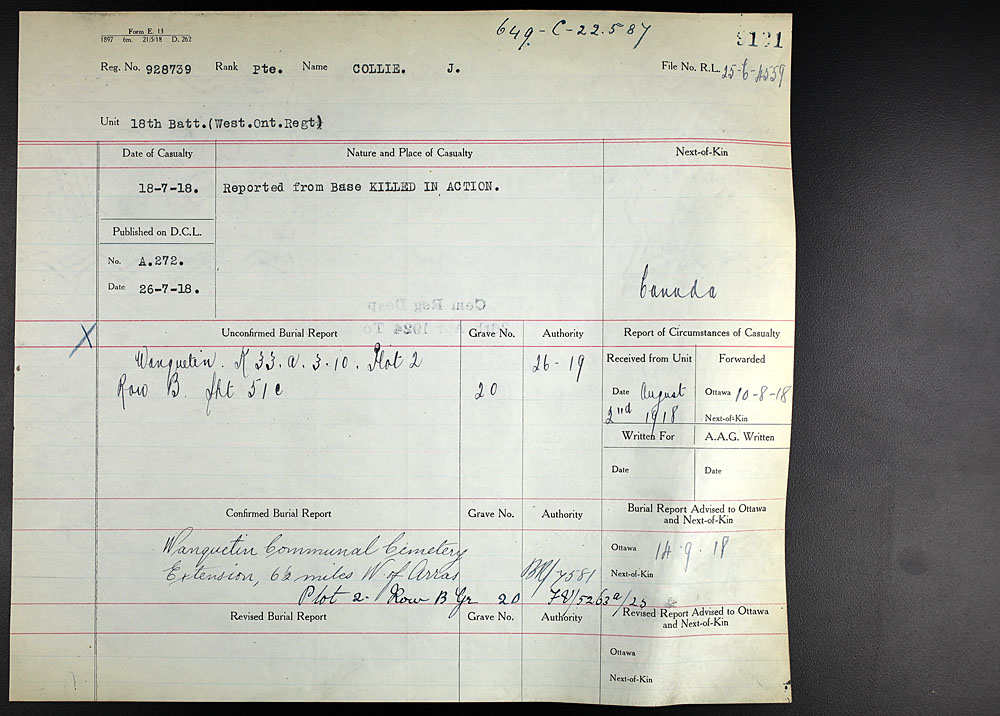 Form E. 13
1897 6m. 21/5/18 D. 262
649-C-22587
Reg. No. 928739 Rank Pte. Name COLLIE. J.
File No. R.L. 25-6-4559
Unit 18th Batt.(West.Ont.Regt)
Date of Casualty Nature and Place of Casualty Next-of-Kin
18-7-18. Reported from Base KILLED IN ACTION.
Published on D.C.L.
No. A.272.
Date 26-7-18.
Canada
X Unconfirmed Burial Report Grave No. Authority Report of Circumstances of Casualty
Wanquetin. K 33.a.3.10. Plot 2 26-19
Row B. Sht 51c 20
Received from Unit Forwarded
Date August Ottawa 10-8-18
2nd 1918 Next-of-Kin
Written For A.A.G. Written
Date Date
Confirmed Burial Report Grave No. Authority Burial Report Advised to Ottawa and Next-of-Kin
Wanquetin Communal Cemetery Ottawa 14.9.18
Extension, 6½ miles W of Arras BR/7581 Next-of-Kin
Plot 2. Row B Gr 20
Revised Burial Report Grave No. Authority Revised Report Advised to Ottawa and Next-of-Kin
Ottawa
Next-of-Kin